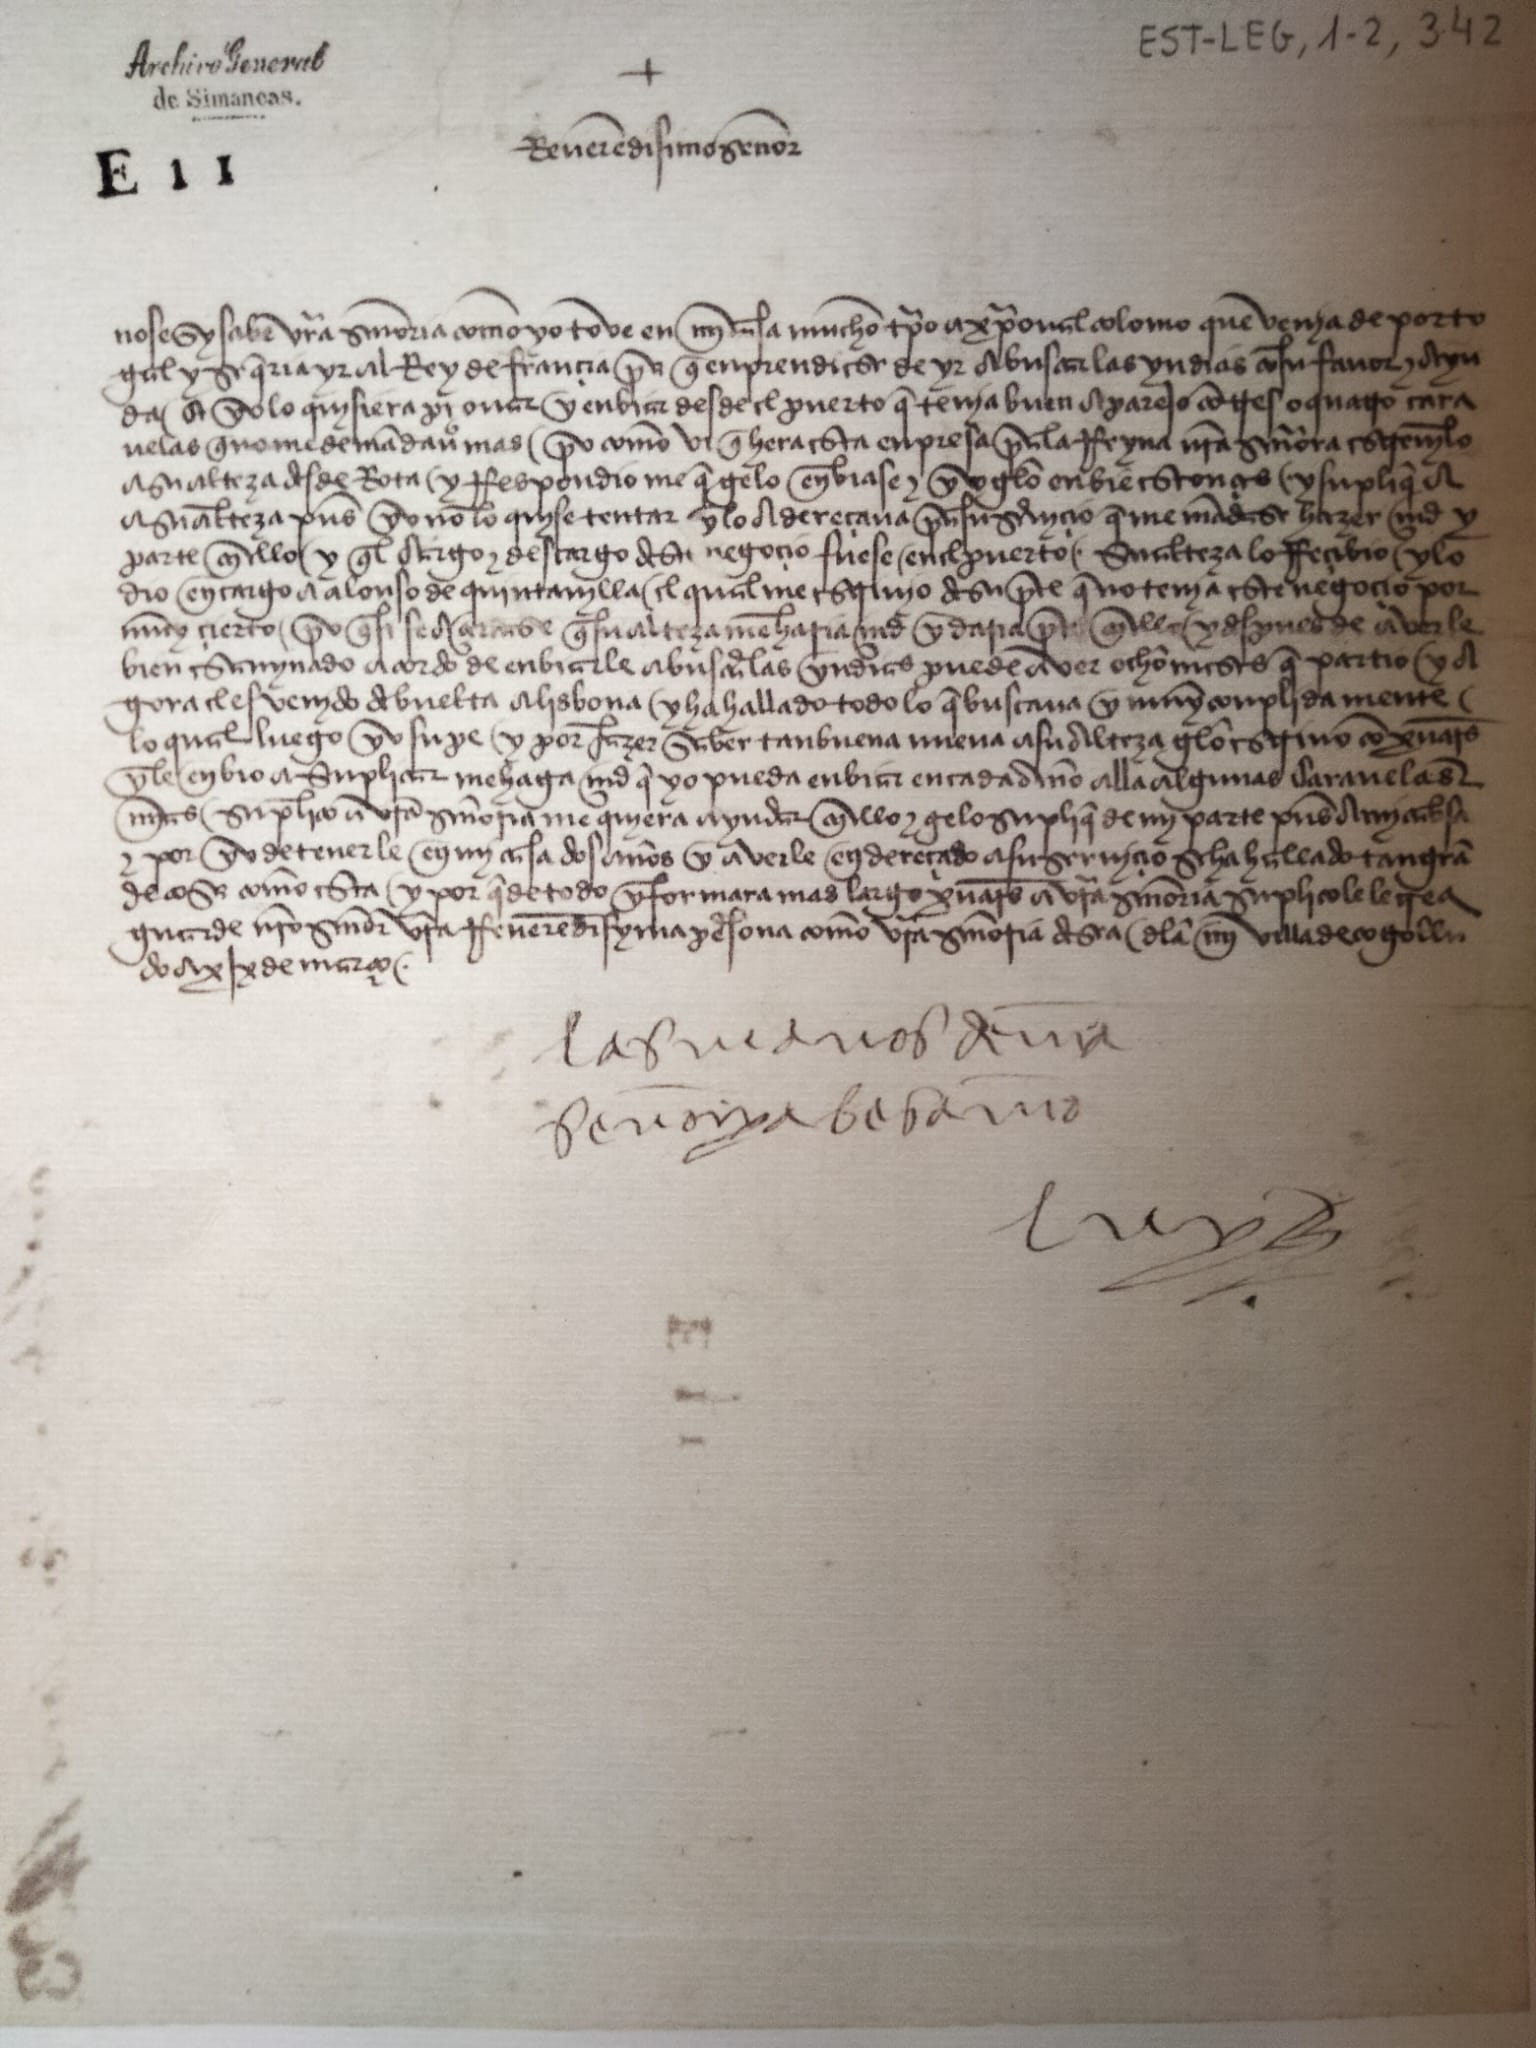 EST-LEG, 1-2, 342
Archivo General
de Simancas.
+
E 1 1
Reuerẽdisimo señor
no se sy sabe vrã señoria como yo toue en my casa mucho tpõ a xpõual colomo que venya de porto
gal y se qria yr al Rey de francia pã q enprendiese de yr a buscar las yndias con su fauor y ayu
da / e yo lo quisiera prouar y enbiar desde el puerto q tenya buen aparejo con tres o quatro cara
uelas q no me demãdaua mas / po como vi q hera esta enpresa pã la Reyna nrã señora escreuilo
a su alteza desde Rota / y Respondiome q gelo enbiase y yo gelo enbie estonces / y supliq a
a su alteza pues yo no lo quise tentar y lo adereçaua pã su seruiçio q me mãdase hazer mrd y
parte en ello / y q el cargo y descargo deste negoçio fuese en el puerto / Su alteza lo Recibio / y lo
dio en cargo a alonso de quintanylla / el qual me escriuio de su pte q no tenya este negoçio por
muy çierto / po q si se açertase q su alteza me haria mrd y daria parte en ello / y despues de averle
bien esamynado acordo de enbiarle a buscar las yndias puede aver ocho meses q partio / y a
gora el es venydo de buelta a lisbona / y ha hallado todo lo q buscaua y muy conplidamente /
lo qual luego yo supe / y por fazer saber tan buena nueua a su alteza gelo escriuo con xuares
y le enbio a suplicar me haga mrd q yo pueda enbiar en cada año alla algunas carauelas
mias / suplico a vrã señoria me quiera ayudar en ello y gelo supliq de my parte pues a my cabsa
y por yo detenerle en my casa dos años y averle endereçado a su seruiçio se ha hallado tan grã
de cosa como esta / y por q de todo ynformara mas largo xuares a vrã señoria suplicole le crea
guarde nrõ señor vrã Reuerẽdisyma persona como vrã señoria desea / de la my villa de cogollu
do a xix de março /
las manos de vrã
señoria besamos
luys